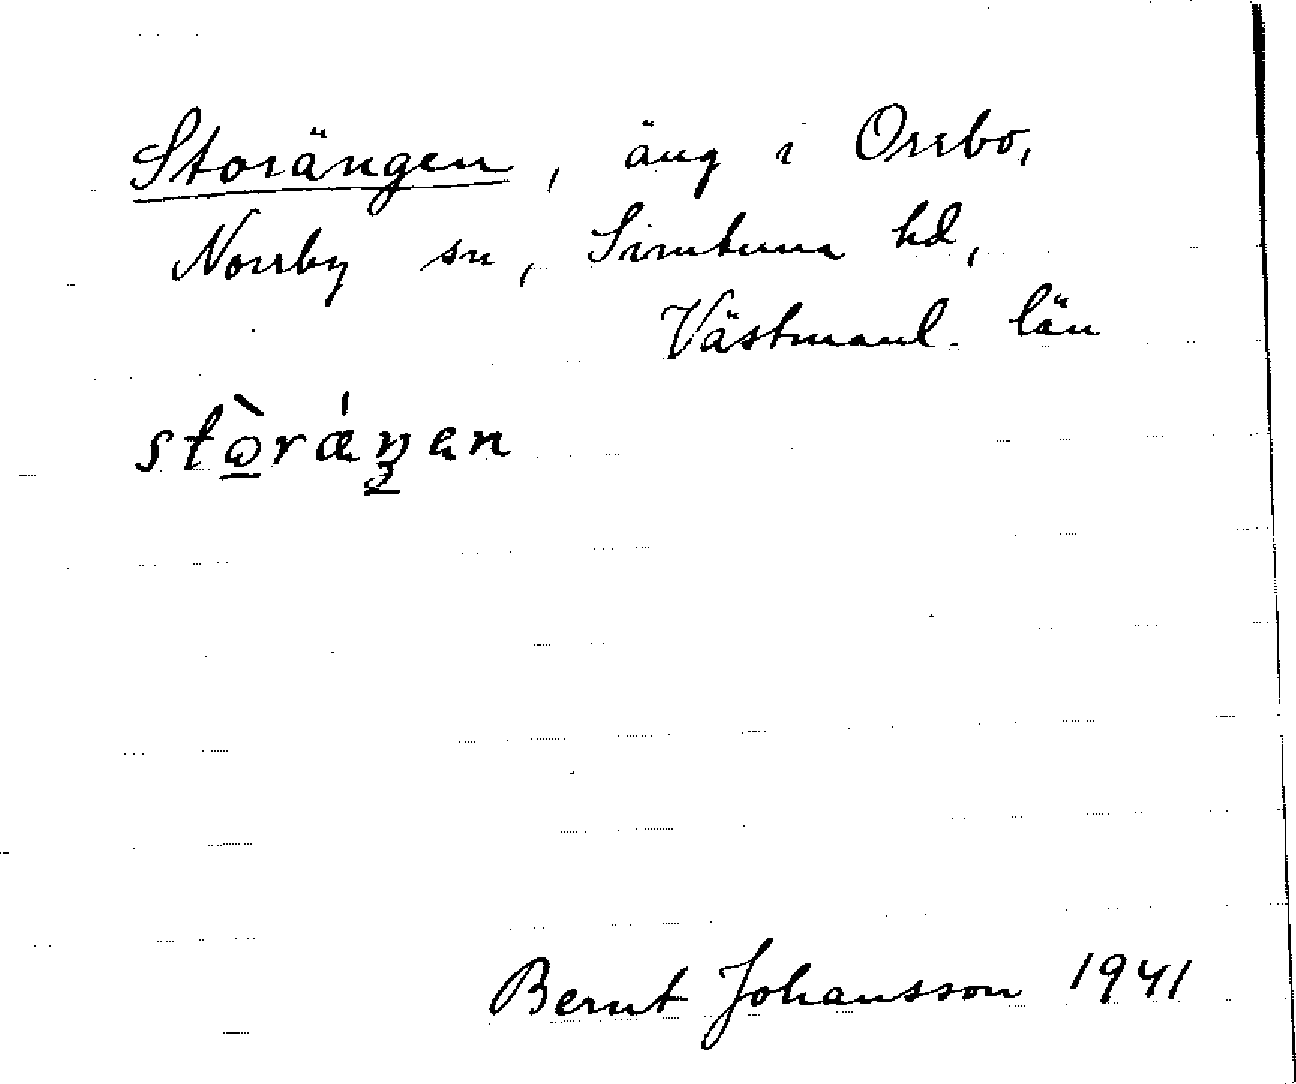 Storängen, äng i Orrbo,
Norrby sn, Simtuna hd,
Västmanl. län
stòrǽŋen
Bernt Johansson 1941